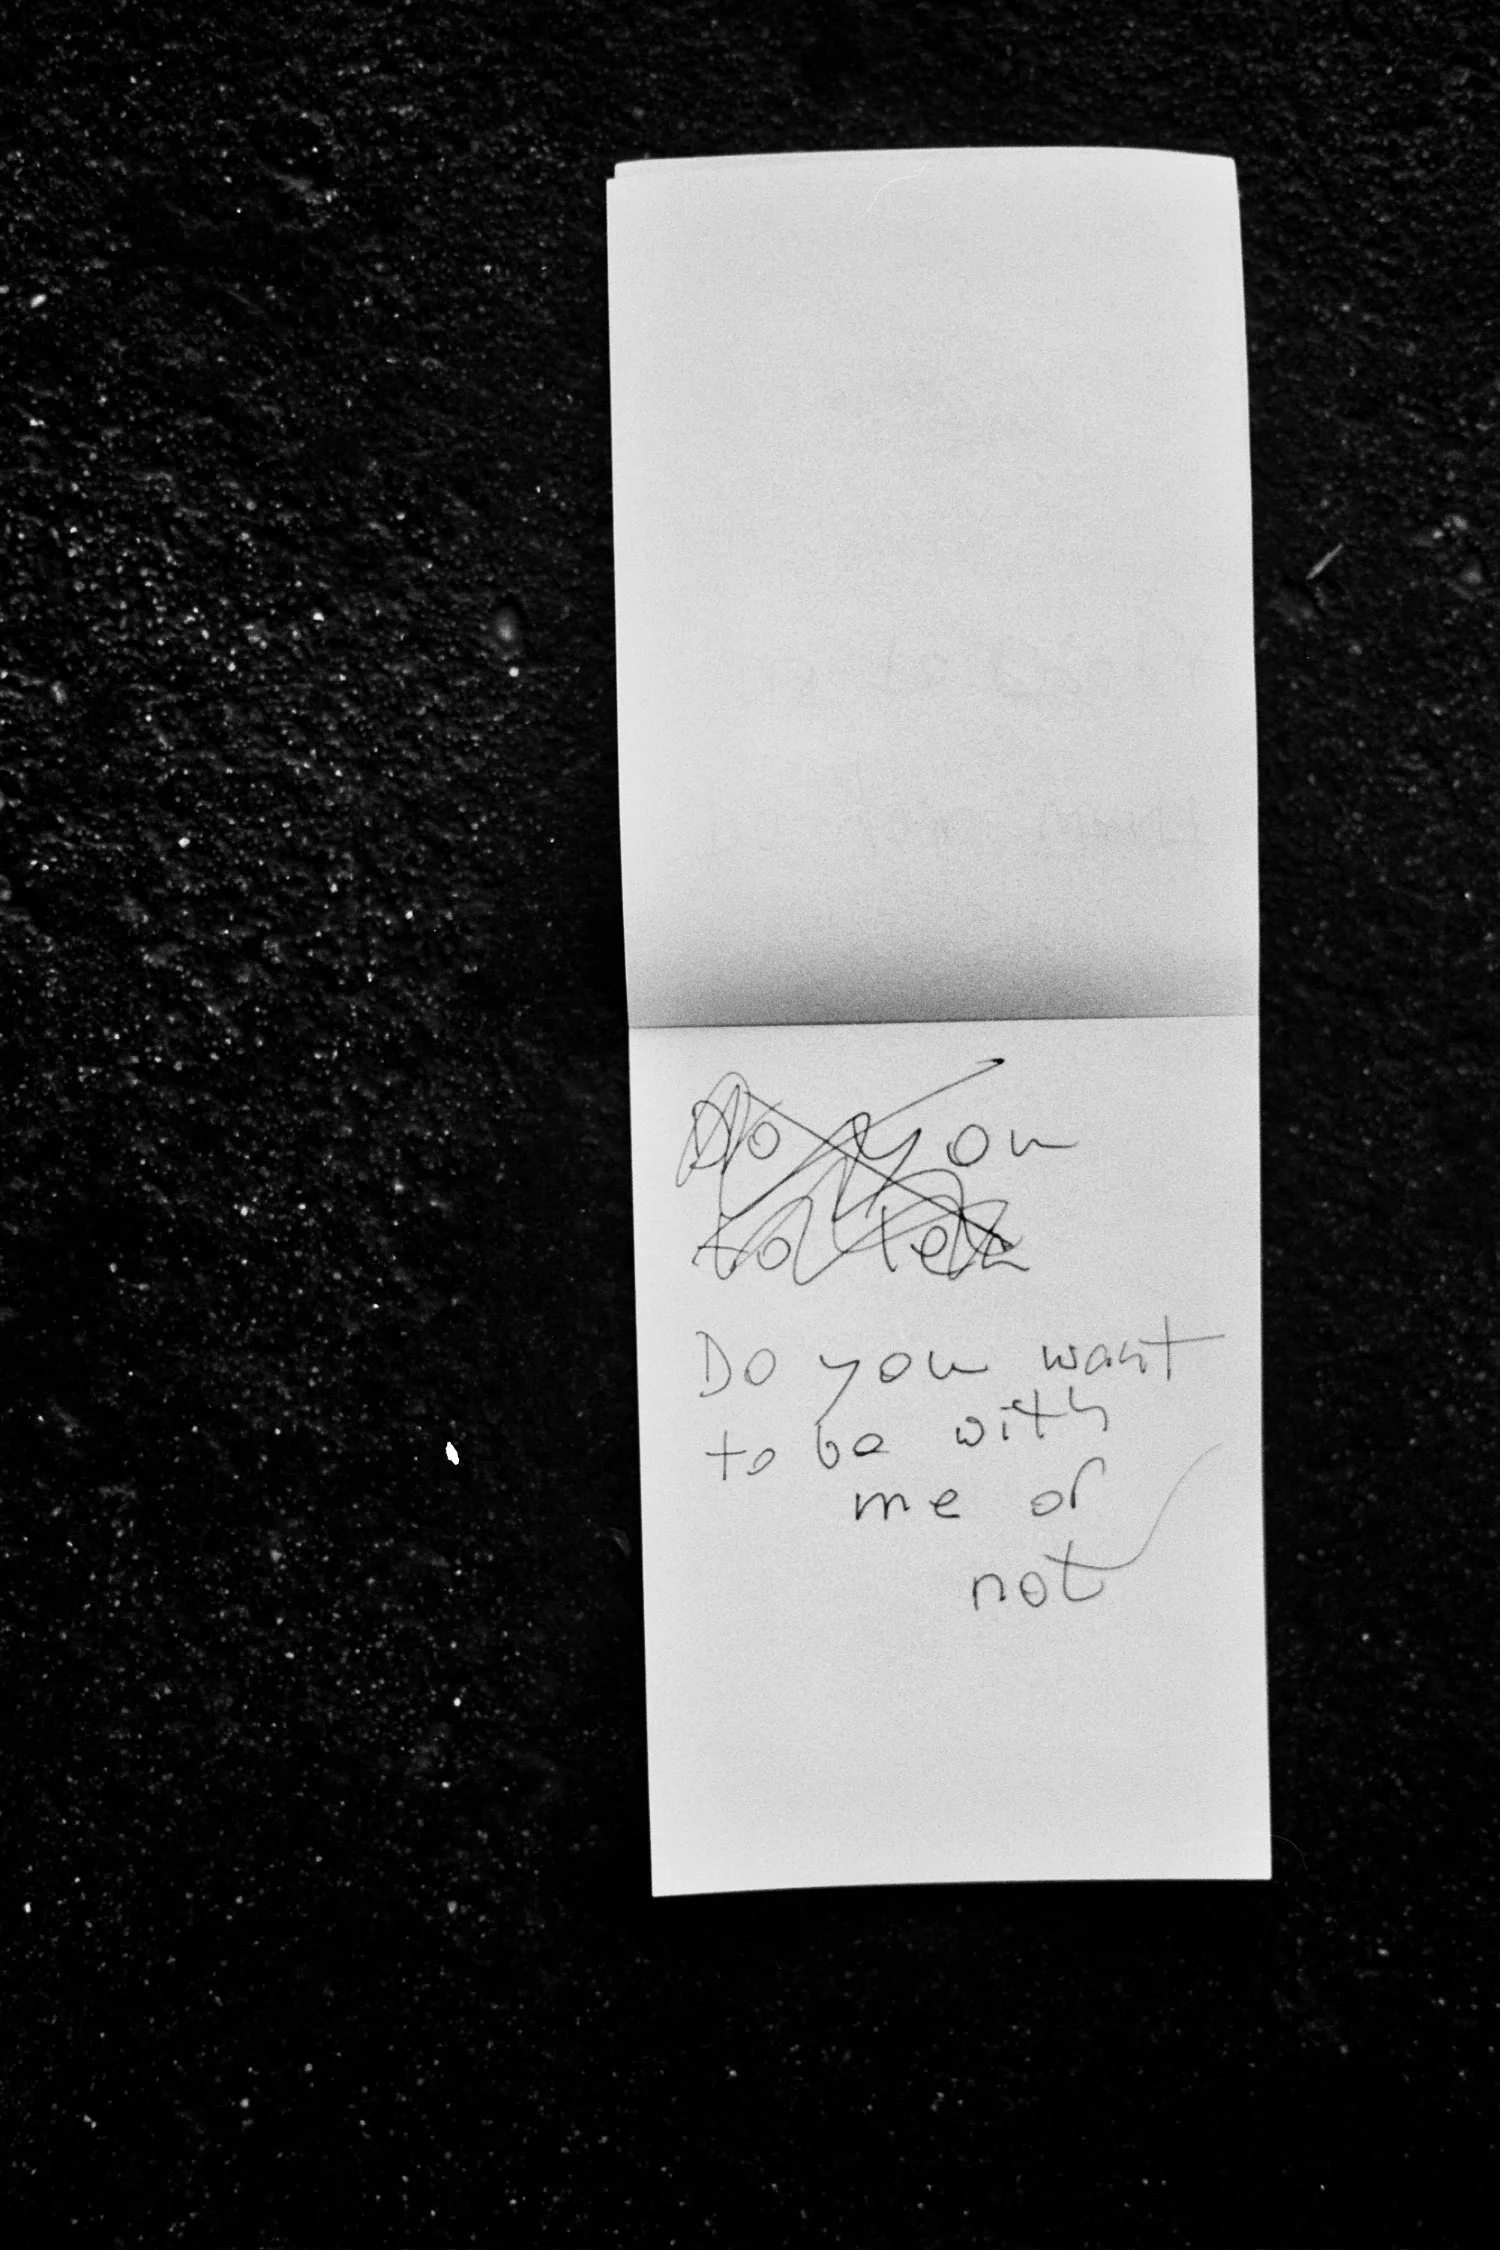 Do you
Do you want
to be with
me or
not